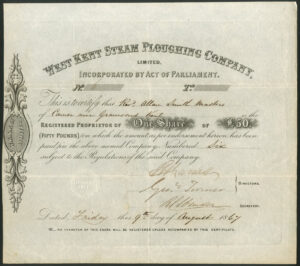 WEST KENT STEAM PLOUGHING COMPANY,
LIMITED.
INCORPORATED BY ACT OF PARLIAMENT.
No.
This is to certify that Revd. Allan Smith Masters
of Camer near Gravesend Kent is the
REGISTERED PROPRIETOR of One Share of £50
(FIFTY POUNDS) on which the amount as per endorsement hereon has been
paid in the above named Company Numbered Six
subject to the Regulations of the said Company.
Geo. Turner
DIRECTORS.
SECRETARY.
Dated, Friday this 9th day of August 1867
NO TRANSFER OF THIS SHARE WILL BE REGISTERED UNLESS ACCOMPANIED BY THIS CERTIFICATE.